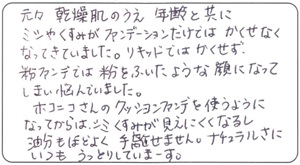 元々 乾燥肌のうえ 年齢と共に
ミシやくすみがファンデーションだけでは かくせなく
なってきていました。リキッドでは かくせず、
粉ファンデでは 粉をふいたような 顔になって
しまい悩んでいました。
ホコニコさんの クッションファンデを使うように
なってからは、シミくすみが見えにくくなるし
油分もほどよく 手離せません。ナチュラルさに
いつも うっとりしていまーす。